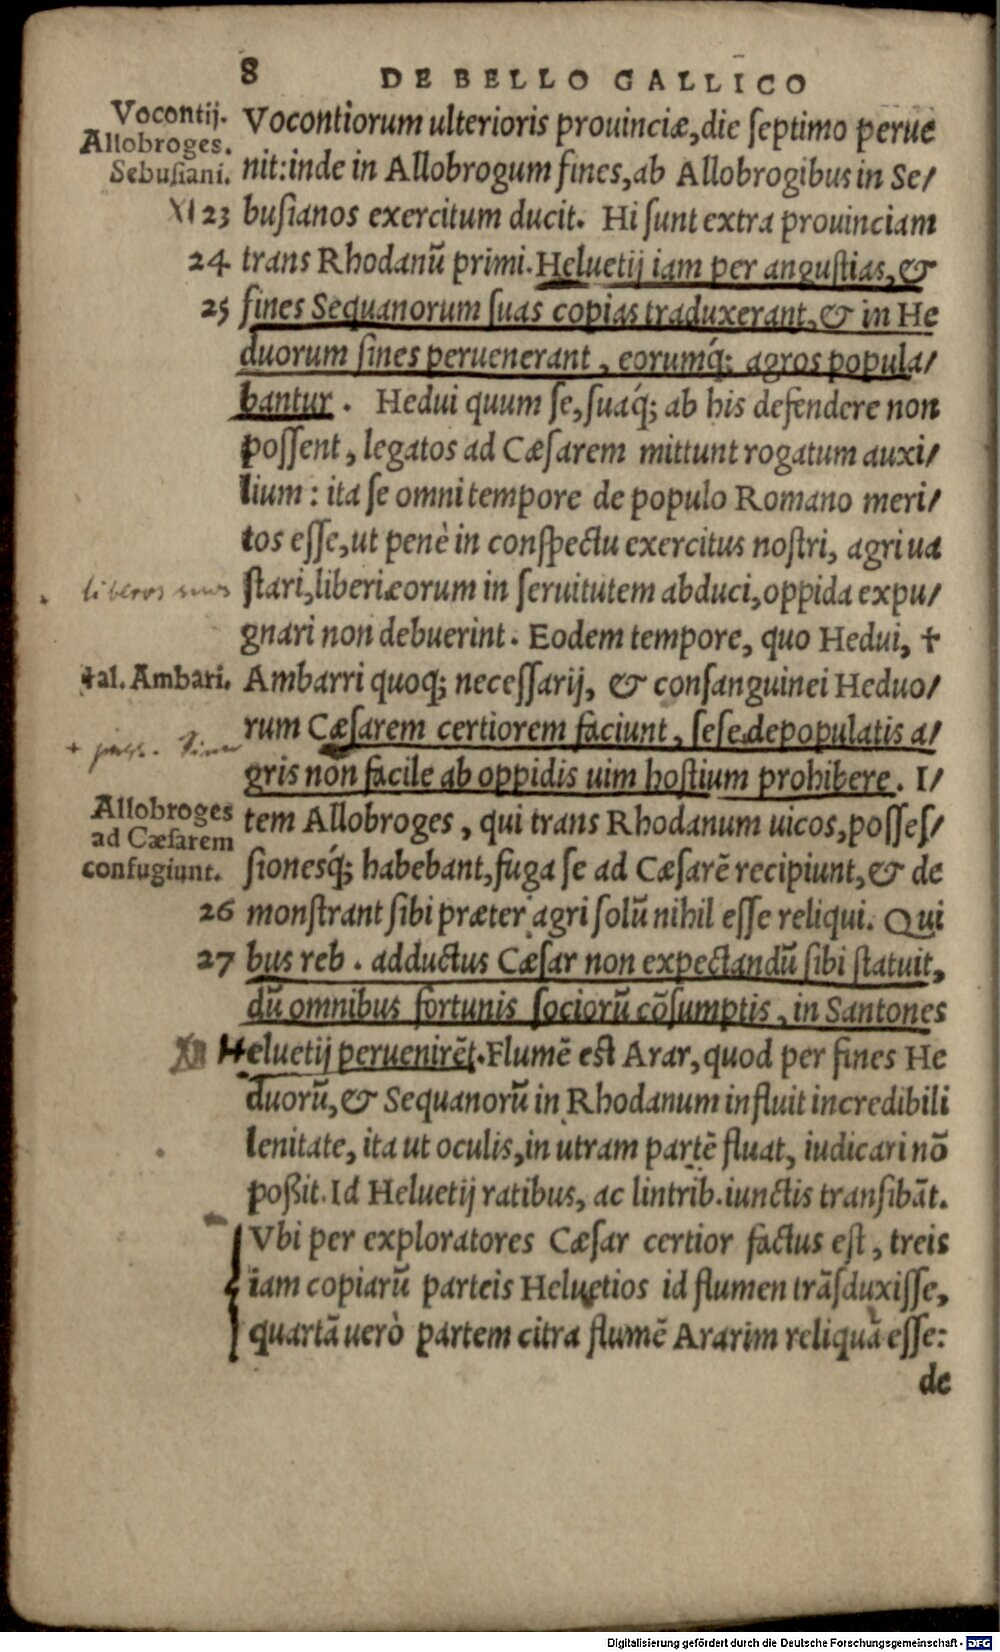 8 DE BELLO GALLICO
Vocontij.
Allobroges.
Sebusiani.
XI 23
24
25
Vocontiorum ulterioris prouinciæ, die ſeptimo perue
nit: inde in Allobrogum fines, ab Allobrogibus in Se/
busianos exercitum ducit. Hi ſunt extra prouinciam
trans Rhodanũ primi. Heluetij iam per anguſtias, &
fines Sequanorum ſuas copias traduxerant, & in He
duorum fines peruenerant, eorumq́; agros popula/
bantur. Hedui quum ſe, ſuaq́; ab his defendere non
poſſent, legatos ad Cæſarem mittunt rogatum auxi/
lium: ita ſe omni tempore de populo Romano meri/
tos eſſe, ut penè in conſpectu exercitus noſtri, agri ua
liberos suos
ſtari, liberi eorum in ſeruitutem abduci, oppida expu/
gnari non debuerint. Eodem tempore, quo Hedui, †
†al. Ambari.
Ambarri quoq; neceſſarij, & conſanguinei Heduo/
rum Cæſarem certiorem faciunt, ſeſe depopulatis a/
gris non facile ab oppidis uim hoſtium prohibere. I/
Allobroges
ad Cæſarem
confugiunt.
tem Allobroges, qui trans Rhodanum uicos, poſſeſ/
ſionesq́; habebant, fuga ſe ad Cæſarẽ recipiunt, & de
26
monſtrant ſibi præter agri ſolũ nihil eſſe reliqui. Qui
27
bus reb. adductus Cæſar non expectandũ ſibi ſtatuit,
dũ omnibus fortunis ſociorũ cõſumptis, in Santones
XII
Heluetij peruenirẽt. Flumẽ est Arar, quod per fines He
duorũ, & Sequanorũ in Rhodanum influit incredibili
lenitate, ita ut oculis, in utram partẽ fluat, iudicari nõ
poßit. Id Heluetij ratibus, ac lintrib. iunctis tranſibãt.
Vbi per exploratores Cæſar certior factus eſt, treis
iam copiarũ parteis Heluetios id flumen trãſduxiſſe,
quartã uerò partem citra flumẽ Ararim reliquã eſſe:
de
Digitalisierung gefördert durch die Deutsche Forschungsgemeinschaft - DFG